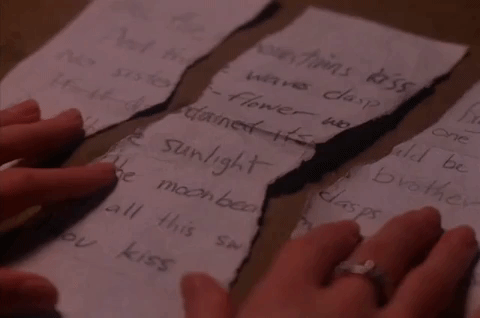 And th
No sister
ountains kiss
waves clasp
flower wo
dained its
sunlight
he moonbea
all this sw
ou kiss
one
uld be
brother
clasps